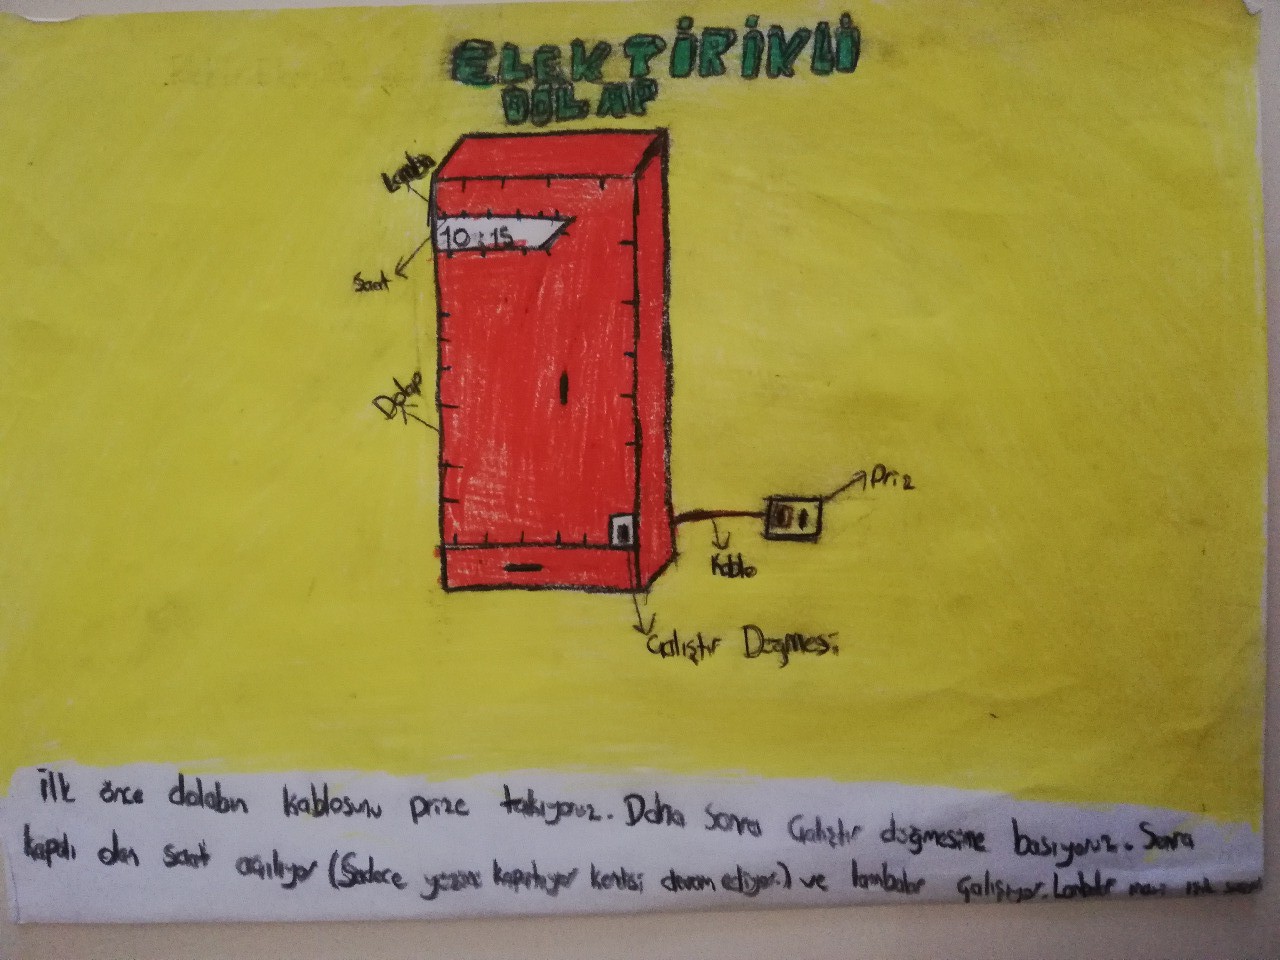 ELEKTİRİKLİ
DOLAP
Lamba
10:15
Saat
Dolap
Priz
Kablo
Çalıştır Düğmesi
İlk önce dolabın kablosunu prize takıyoruz. Daha sonra Çalıştır düğmesine basıyoruz. Sonra
kapalı olan saat açılıyor (Sadece yazısı kapatılıyor kendisi devam ediyor.) ve lambalar çalışıyor. Lambalar mavi ışık